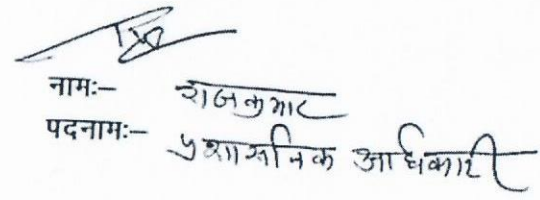 नामः- राजकुमार
पदनामः- प्रशासनिक अधिकारी